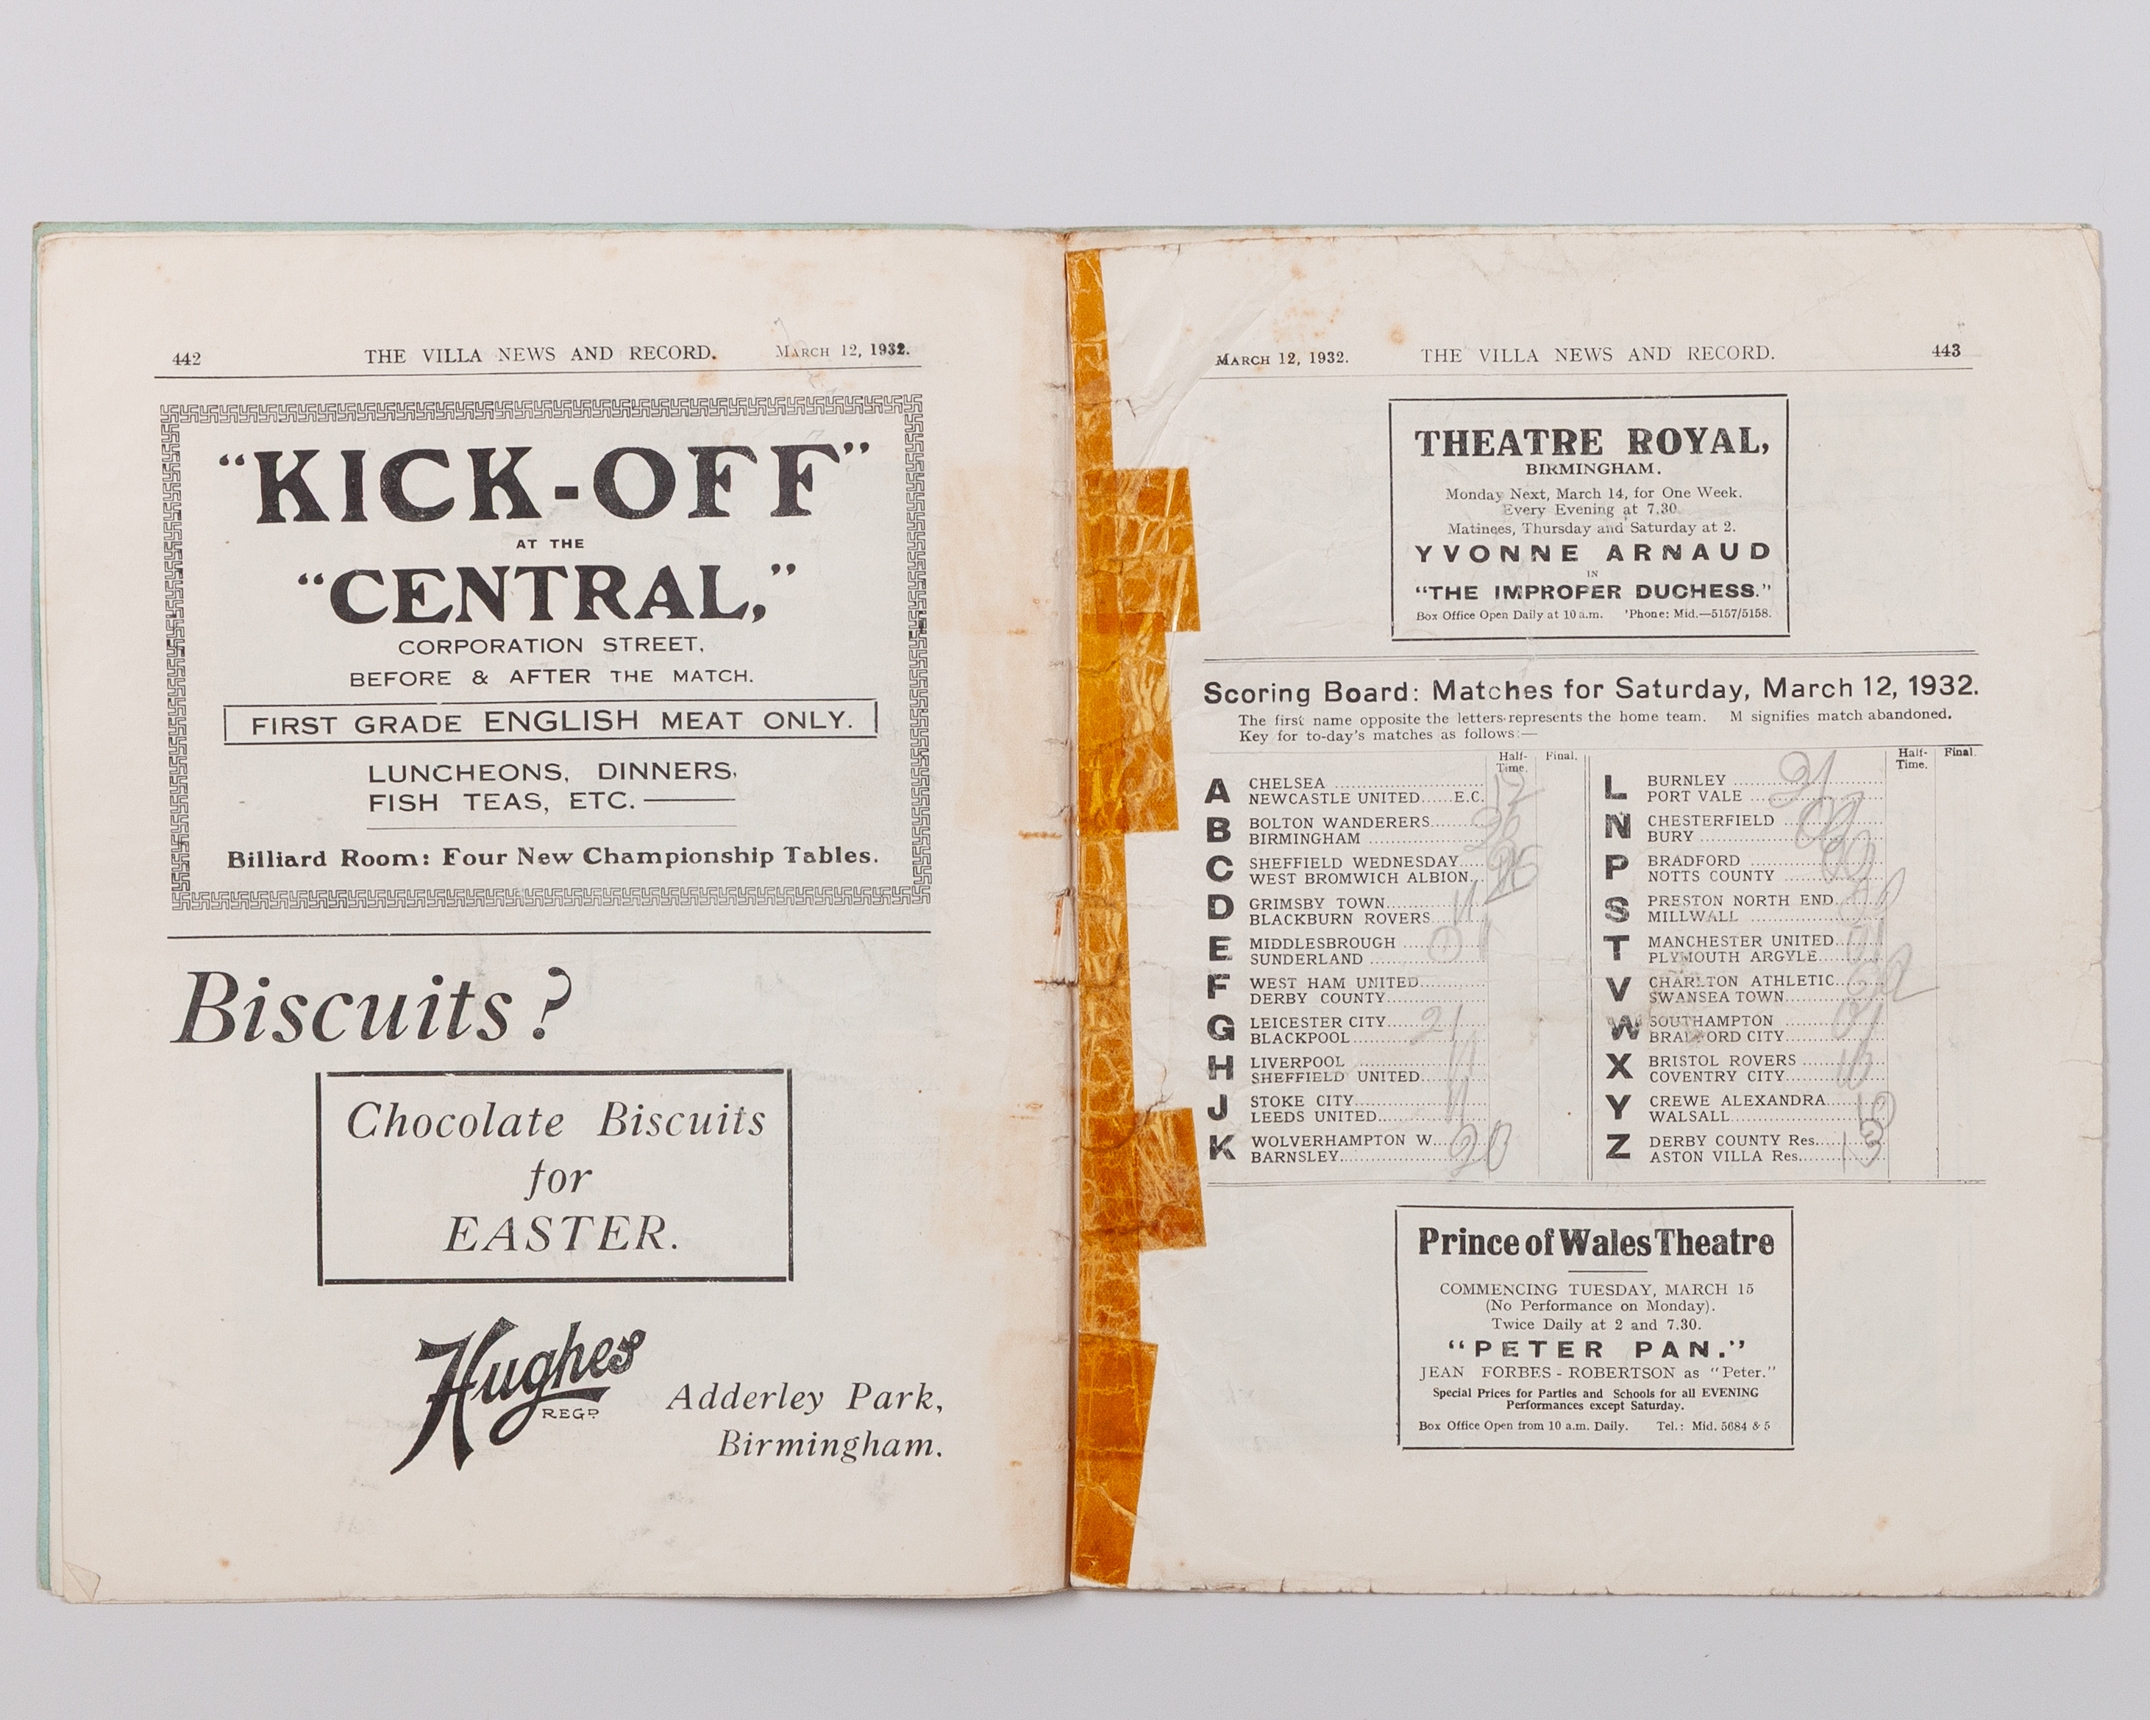 442 THE VILLA NEWS AND RECORD. MARCH 12, 1932.
“KICK-OFF”
AT THE
“CENTRAL,”
CORPORATION STREET,
BEFORE & AFTER THE MATCH.
FIRST GRADE ENGLISH MEAT ONLY.
LUNCHEONS, DINNERS,
FISH TEAS, ETC.
Billiard Room: Four New Championship Tables.
Biscuits?
Chocolate Biscuits
for
EASTER.
Hughes
REGD
Adderley Park,
Birmingham.
MARCH 12, 1932. THE VILLA NEWS AND RECORD. 443
THEATRE ROYAL,
BIRMINGHAM.
Monday Next, March 14, for One Week.
Every Evening at 7.30
Matinees, Thursday and Saturday at 2.
YVONNE ARNAUD
IN
“THE IMPROPER DUCHESS.”
Box Office Open Daily at 10 a.m. 'Phone: Mid.—5157/5158.
Scoring Board: Matches for Saturday, March 12, 1932.
The first name opposite the letters represents the home team. M signifies match abandoned.
Key for to-day's matches as follows:—
Half-Time. Final.
A CHELSEA 12
NEWCASTLE UNITED......E.C.
B BOLTON WANDERERS
BIRMINGHAM
C SHEFFIELD WEDNESDAY
WEST BROMWICH ALBION
D GRIMSBY TOWN 11
BLACKBURN ROVERS
E MIDDLESBROUGH 01
SUNDERLAND
F WEST HAM UNITED
DERBY COUNTY
G LEICESTER CITY 21
BLACKPOOL
H LIVERPOOL 11
SHEFFIELD UNITED
J STOKE CITY 11
LEEDS UNITED
K WOLVERHAMPTON W. 20
BARNSLEY
Half-Time. Final.
L BURNLEY 21
PORT VALE
N CHESTERFIELD
BURY
P BRADFORD
NOTTS COUNTY
S PRESTON NORTH END
MILLWALL
T MANCHESTER UNITED
PLYMOUTH ARGYLE
V CHARLTON ATHLETIC
SWANSEA TOWN
W SOUTHAMPTON 01
BRADFORD CITY
X BRISTOL ROVERS 10
COVENTRY CITY
Y CREWE ALEXANDRA 10
WALSALL
Z DERBY COUNTY Res. 13
ASTON VILLA Res.
Prince of Wales Theatre
COMMENCING TUESDAY, MARCH 15
(No Performance on Monday).
Twice Daily at 2 and 7.30.
“PETER PAN.”
JEAN FORBES-ROBERTSON as “Peter.”
Special Prices for Parties and Schools for all EVENING
Performances except Saturday.
Box Office Open from 10 a.m. Daily. Tel.: Mid. 5684 & 5